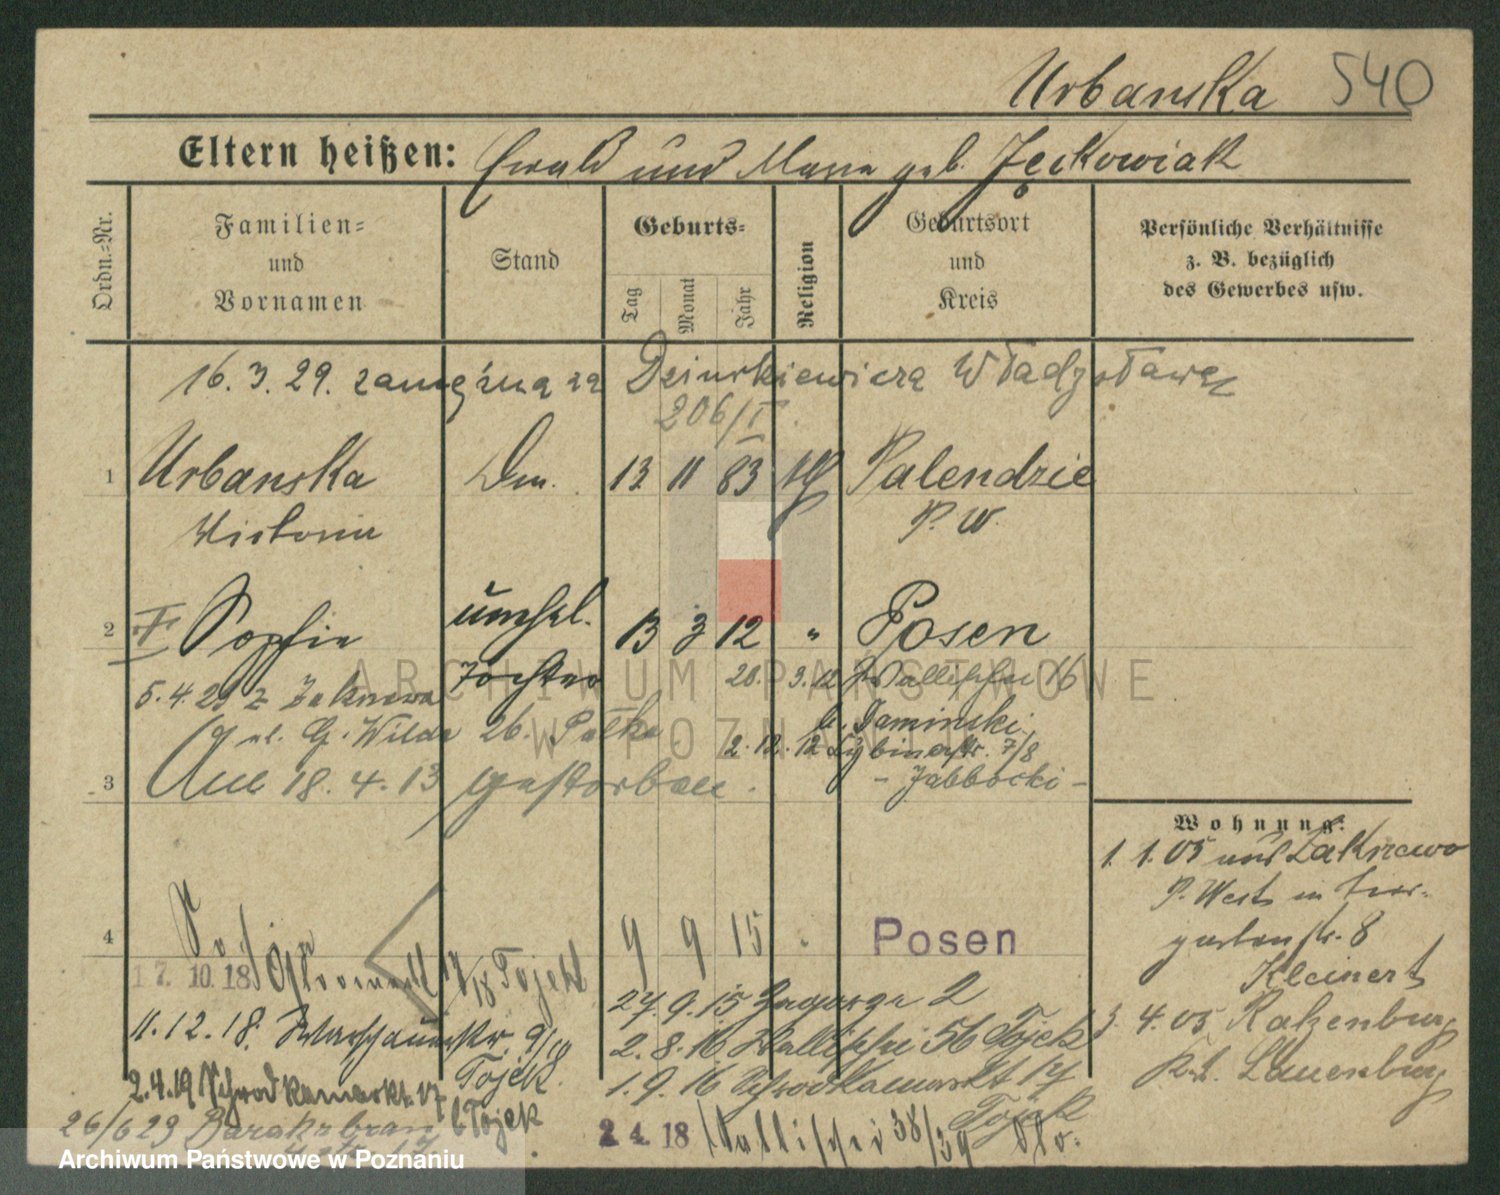 Urbanska 540
Eltern heißen: Ewald und Maria geb. Jęckowiak
Ordn.=Nr.
Familien=
und
Vornamen
Stand
Geburts=
Tag
Monat
Jahr
Religion
Geburtsort
und
Kreis
Persönliche Verhältnisse
z. B. bezüglich
des Gewerbes usw.
16. 3. 29. zamężna za Dziurkiewicza Władysława
206/I
1 Urbanska Dm. 13 11 83 Palendzie
Victoria P. W.
2 Sophie unehel. 13 3 12 " Posen
Tochter 20. 3. 12 Wallischei 16
5. 4. 29 z Zakrzewa
G. Wilda 26. b. Daminski
2. 12. 12 Cybinastr. 7/8
3 Am 18. 4. 13 gestorben. - Jabbocki -
Wohnung:
1. 1. 05 aus Zakrzewo
P. West in Tier-
gartenstr. 8
Kleinert
3. 4. 05 Ratzenburg
Kr. Lauenburg
4 9 9 15 Posen
17. 10. 18 17/18 Tojek
27. 9. 15 2
11. 12. 18. Warschauerstr. 9/
Tojek
2. 8. 16 Wallischei 56 Tojek
1. 9. 16 Schrodkamarkt 17
Tojek
2. 4. 19 Schrodkamarkt. 17
b Tojek
26/6 29
2 4. 18 Wallischei 38/39
ARCHIWUM PAŃSTWOWE
W POZNANIU
Archiwum Państwowe w Poznaniu